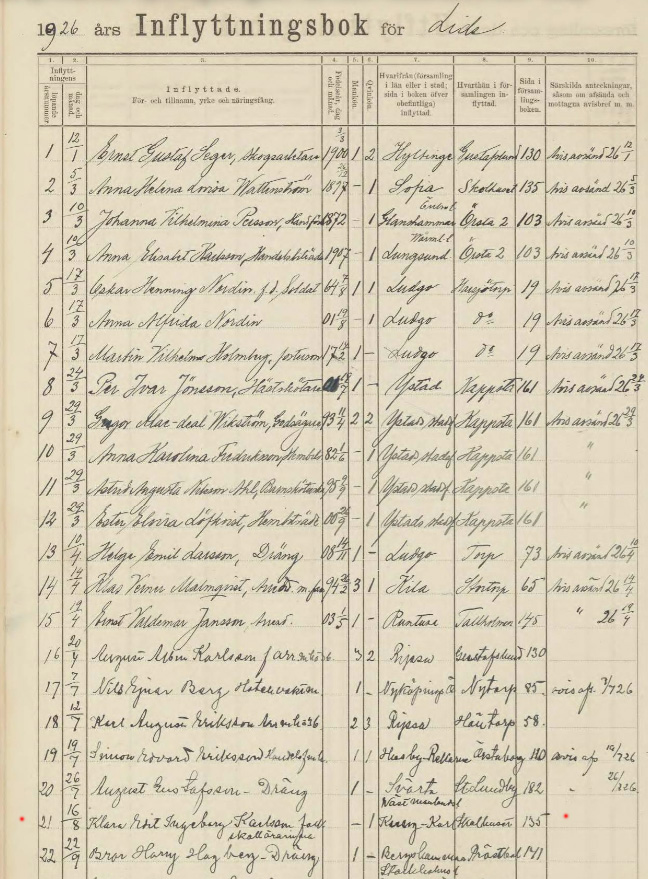 1926 års Inflyttningsbok för Lids
1. 2. 3. 4. 5. 6. 7. 8. 9. 10.
Inflyttningens
löpande årsnummer
dag och månad.
Inflyttade.
För- och tillnamn, yrke och näringsfång.
Födelseår, dag och månad.
Mankön.
Qvinkön.
Hvarifrån (församling i län eller i stad; sida i boken öfver obefintliga) inflyttad.
Hvarthän i församlingen inflyttad.
Sida i församlingsboken.
Särskilda anteckningar, såsom om afsända och mottagna avisbref m. m.
1 12/1 Ernst Gustaf Seger, Skogsarbetare 1900 1 2 Hyltinge Gustafslund 130 Avis avsänd 26 12/1
2 5/3 Anna Helena Lovisa Wattenström 1877 – 1 Sofia 135 Avis avsänd 26 5/3
3 10/3 Johanna Vilhelmina Persson, 1872 – 1 Glanshammar Örsta 2 103 Avis avsänd 26 10/3
4 10/3 Anna Elisabet Karlsson, Handelsbiträde 1907 – 1 Lungsund Örsta 2 103 Avis avsänd 26 10/3
5 17/3 Oskar Henning Nordin, f.d. Soldat 64 7/8 1 1 Ludgo 19 Avis avsänd 26 17/3
6 17/3 Anna Alfrida Nordin 01 19/8 – 1 Ludgo do 19 Avis avsänd 26 17/3
7 17/3 Martin Vilhelm Holmberg, fosterson 17 1 – Ludgo do 19 Avis avsänd 26 17/3
8 24/3 Per Ivar Jönsson, Hästskötare 1 – Ystad Kappsta 161 Avis avsänd 26 24/3
9 29/3 Mac-deal Wikström, Godsägare 93 11/4 2 2 Ystads stadsf Kappsta 161 Avis avsänd 26 29/3
10 29/3 Anna Karolina Fredrikson, 82 1/6 – 1 Ystads stadsf Kappsta 161 "
11 29/3 Astrid Augusta Nilsson Ahl, Barnsköterska 95 – 1 Ystads stadsf Kappsta 161 "
12 29/3 Ester Elvira Löfkvist, Hembiträde 00 – 1 Ystads stadsf Kappsta 161 "
13 10/4 Helge Emil Larsson, Dräng 08 14/11 1 – Ludgo Torp 73 Avis avsänd 26 10/4
14 19/4 Klas Verner Malmqvist, Arrend. m. fam 94 3 1 Kila Stortorp 65 Avis avsänd 26 19/4
15 19/4 Ernst Valdemar Jansson, Arrend. 03 1/5 1 – Runtuna Tallholmen 145 " 26 19/4
16 20/4 August Albin Karlsson 3 2 Ripsa Gustafslund 130
17 7/7 Nils Ejnar Berg 1 – Nyköpings Nytorp 85. avis af. 7/7 26
18 12/7 Karl August Eriksson 2 3 Ripsa 58.
19 19/7 Simon Edvard Eriksson 1 1 Husby-Rekarne Årstaborg avis af 19/7 26
20 26/7 August Gustafsson – Dräng 1 – Svärta St. Lundby 182 " 26/7 26.
Västmanland
21 16/8 Klara Edit Ingeborg Karlsson – 1 Kung-Karl 135
22 22/9 Bror Harry Hagberg – Dräng 1 – 141